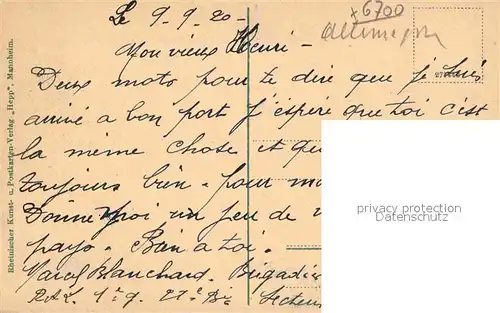 Le 9-9-20-
x 6700
Allemagne
Mon vieux Henri -
Deux moto pour te dire que je suis
arrivé a bon port j'espère que toi c'est
la même chose et que
toujours bien - pour mo
Donne moi un peu de
payo - Bien a toi -
Marcel Blanchard - Brigadie
1e g. 21e Bie Secteur
Rheinischer Kunst- u. Postkarten-Verlag „Hepp", Mannheim.
privacy protection
Datenschutz